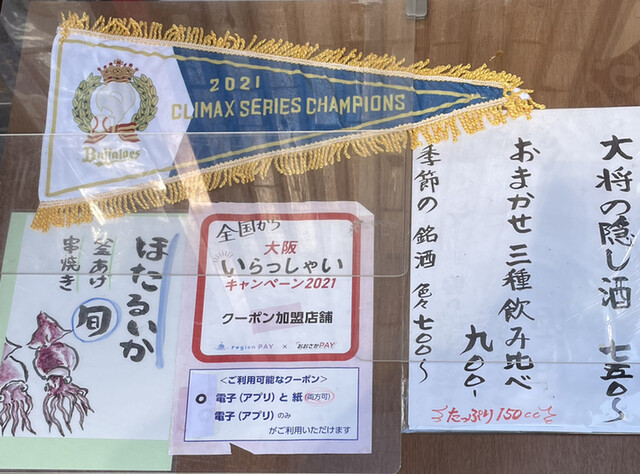 2021
CLIMAX SERIES CHAMPIONS
Buffaloes
大将の隠し酒 七五〇〜
おまかせ三種飲み比べ
九〇〇-
季節の銘酒 色々七〇〇〜
たっぷり150cc
ほたるいか
釜あげ
串焼き
旬
全国から
大阪
いらっしゃい
キャンペーン2021
クーポン加盟店舗
region PAY × おおさかPAY
<ご利用可能なクーポン>
電子(アプリ)と紙(両方可)
電子(アプリ)のみ
がご利用いただけます